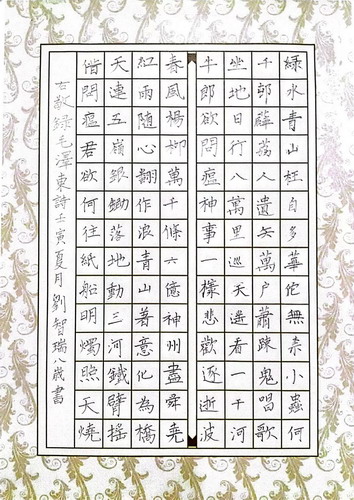 綠水青山枉自多華佗無奈小蟲何
千邨薜荔人遺矢萬戶蕭疎鬼唱歌
坐地日行八萬里巡天遙看一千河
牛郎欲問瘟神事一樣悲歡逐逝波
春風楊柳萬千條六億神州盡舜堯
紅雨隨心翻作浪青山著意化為橋
天連五嶺銀鋤落地動三河鐵臂搖
借問瘟君欲何往紙船明燭照天燒
右敬錄毛澤東詩壬寅夏月劉智瑞八歲書